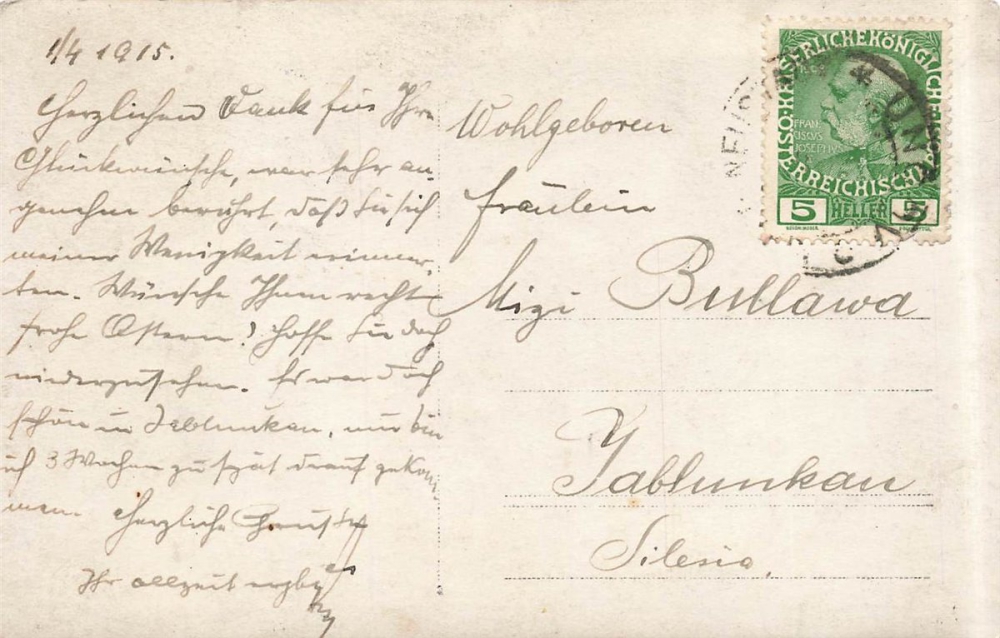 1/4 1915.
Herzlichen Dank für Ihre
Glückwünsche, war sehr an-
genehm berührt, daß Sie sich
meiner Wenigkeit erinner-
ten. Wünsche Ihnen recht
frohe Ostern! Hoffe Sie doch
wiederzusehen. Es war doch
schön in Jablunkau, nur bin
ich 3 Wochen zu spät drauf gekom-
men. Herzliche Grüße
Ihr allzeit ergb.
Wohlgeboren
Fräulein
Mizi Bullawa
Jablunkau
Silesia.
KAISERLICHE KÖNIGLICHE
ÖSTERREICHISCHE
FRAN
CISCUS
JOSEPHUS
5 HELLER 5